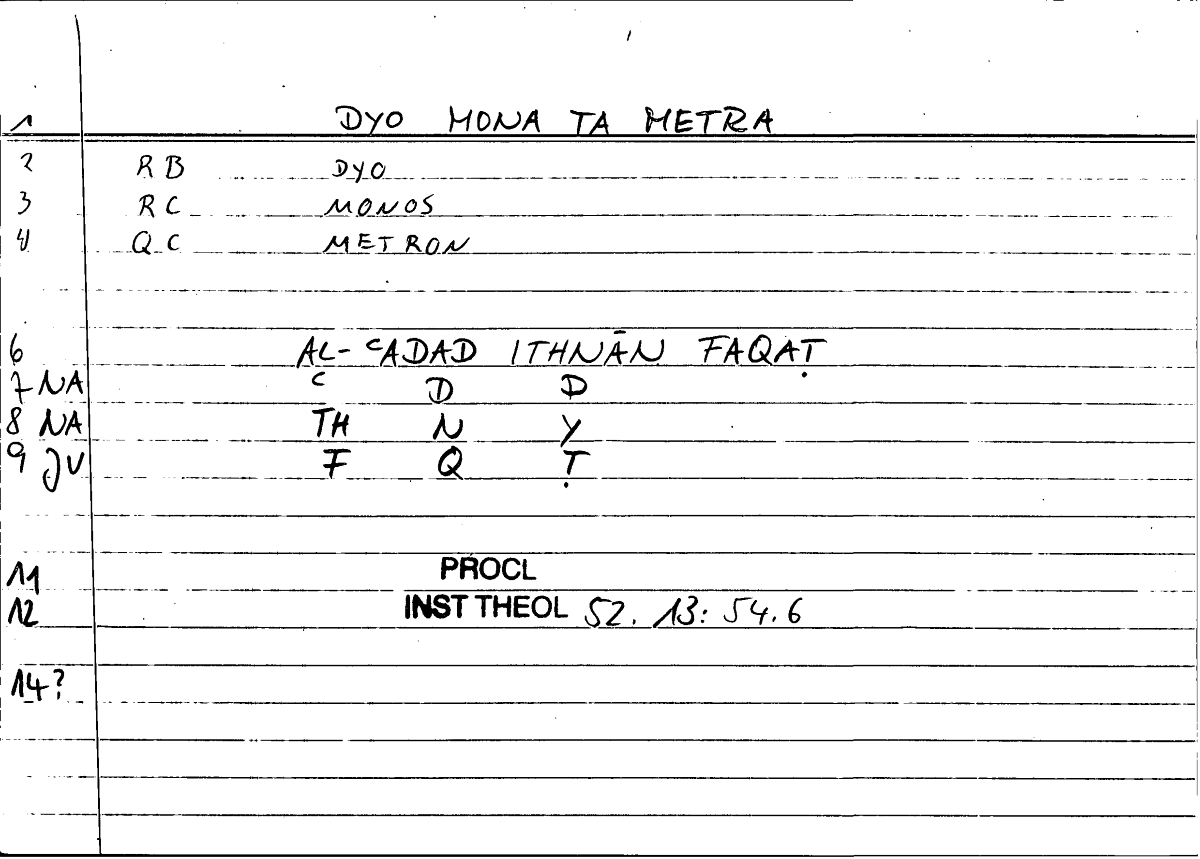 1 DYO MONA TA METRA
2 RB DYO
3 RC MONOS
4 QC METRON
6 AL-ʿADAD ITHNĀN FAQAṬ
7 NA ʿ D D
8 NA TH N Y
9 JV F Q Ṭ
11 PROCL
12 INST THEOL 52. 13: 54.6
14?